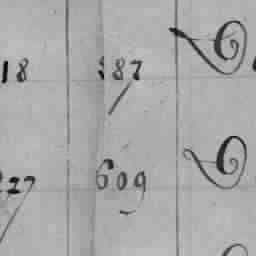 18 387
227 609